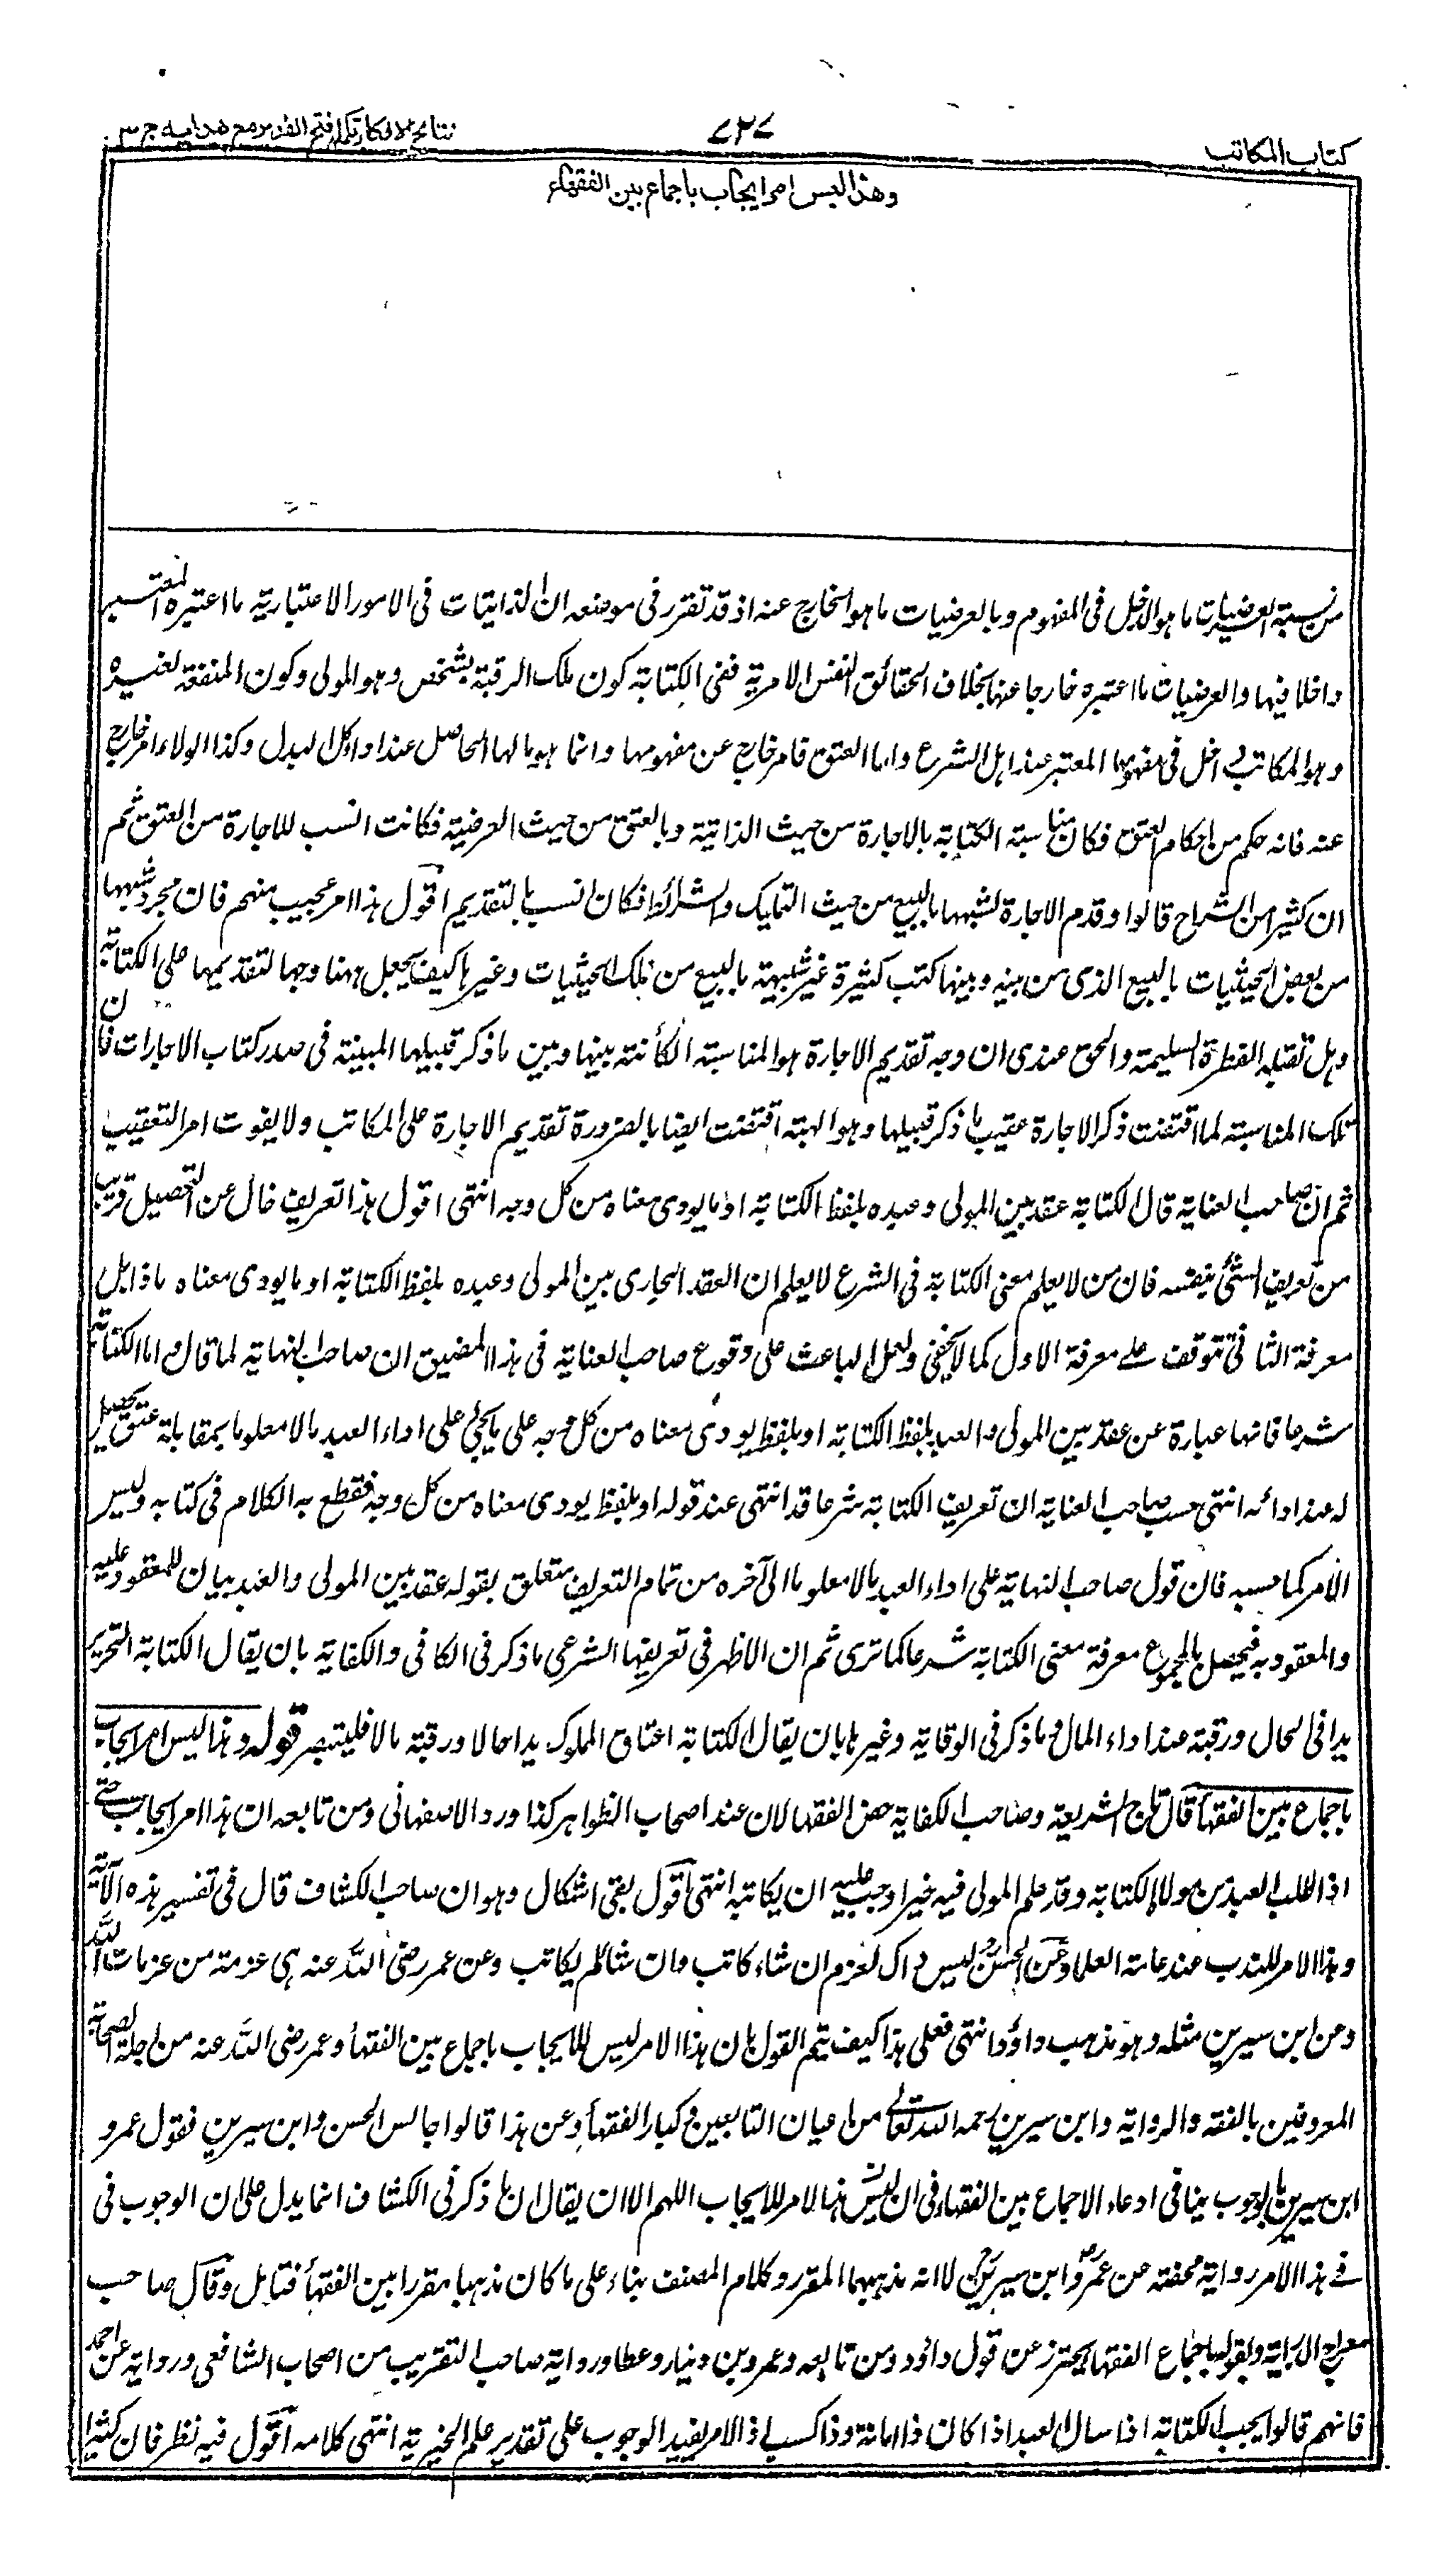 كتاب المكاتب
٧٢٧
نتائج الافكار تكملہ فتح القدير مع هدايه ج ٣
وهذا ليس امر ايجاب باجماع بين الفقهاء
من نسبة العرضيات ما هو الداخل فى المفهوم وبالعرضيات ما هو الخارج عنه اذ قد تقرر فى موضعه ان الذاتيات فى الامور الاعتبارية ما اعتبره المعتبر
داخلا فيها والعرضيات ما اعتبره خارجا عنها بخلاف الحقائق النفس الامرية ففى الكتابة كون ملك الرقبة لشخص وهو المولى وكون المنفعة لغيره
وهو المكاتب داخل فى مفهومها المعتبر عند اهل الشرع واما العتق فامر خارج عن مفهومها وانما هو مالها الحاصل عند اداء كل البدل وكذا الولاء امر خارج
عنه فانه حكم من احكام العتق فكان مناسبة الكتابة بالاجارة من حيث الذاتية وبالعتق من حيث العرضية فكانت انسب للاجارة من العتق ثم
ان كثيرا من الشراح قالوا وقدم الاجارة لشبهها بالبيع من حيث التمليك والشرائط فكان انسب بالتقديم اقول هذا امر عجيب منهم فان مجرد شبهها
من بعض الحيثيات بالبيع الذى من بينه وبينها كتب كثيرة غير شبيهة بالبيع من تلك الحيثيات وغيرها كيف يجعل ههنا وجها لتقديمها على الكتابة
وهل تقبله الفطرة السليمة والحق عندى ان وجه تقديم الاجارة هو المناسبة الكائنة بينها وبين ما ذكر قبيلها المبينة فى صدر كتاب الاجارات فان
تلك المناسبة لما اقتضت ذكر الاجارة عقيب ما ذكر قبيلها وهو الهبة اقتضت ايضا بالضرورة تقديم الاجارة على المكاتب ولا يفوت امر التعقيب
ثم ان صاحب العناية قال الكتابة عقد بين المولى وعبده بلفظ الكتابة او ما يودى معناه من كل وجه انتهى اقول هذا تعريف خال عن التحصيل قريب
من تعريف الشئ بنفسه فان من لا يعلم معنى الكتابة فى الشرع لا يعلم ان العقد الجارى بين المولى وعبده بلفظ الكتابة او ما يودى معناه ماذا بل
معرفة الثانى تتوقف على معرفة الاول كما لا يخفى ولعل الباعث على وقوع صاحب العناية فى هذا المضيق ان صاحب النهاية لما قال واما الكتابة
شرعا فانها عبارة عن عقد بين المولى والعبد بلفظ الكتابة او بلفظ يودى معناه من كل وجه على ما يجئ على اداء العبد مالا معلوما بمقابلة عتق يحصل
له عند ادائه انتهى حسب صاحب العناية ان تعريف الكتابة شرعا قد انتهى عند قوله او بلفظ يودى معناه من كل وجه فقطع به الكلام فى كتابه وليس
الامر كما حسبه فان قول صاحب النهاية على اداء العبد مالا معلوما الى آخره من تمام التعريف متعلق بقوله عقد بين المولى والعبد بيان للمعقود عليه
والمعقود به فيحصل بالمجموع معرفة معنى الكتابة شرعا كما ترى ثم ان الاظهر فى تعريفها الشرعى ما ذكر فى الكافى والكفاية بان يقال الكتابة التحرير
يدا فى الحال ورقبة عند اداء المال وما ذكر فى الوقاية وغيرها بان يقال الكتابة اعتاق المملوك يدا حالا ورقبة مالا فليتبصر قوله وهذا ليس امر ايجاب
باجماع بين الفقهاء قال تاج الشريعة وصاحب الكفاية خص الفقهاء لان عند اصحاب الظواهر كذا ورد الاصفهانى ومن تابعه ان هذا امر ايجاب حتى
اذا طلب العبد من مولاه الكتابة وقد علم المولى فيه خيرا وجب عليه ان يكاتبه انتهى اقول بقى اشكال وهو ان صاحب الكشاف قال فى تفسير هذه الآية
وهذا الامر للندب عند عامة العلماء وعن الحسن ليس ذاك لعزم ان شاء كاتب وان شاء لم يكاتب وعن عمر رضى الله عنه هى عزمة من عزمات الله
وعن ابن سيرين مثله وهو مذهب داؤد انتهى فعلى هذا كيف يتم القول بان هذا الامر ليس للايجاب باجماع بين الفقهاء وعمر رضى الله عنه من اجلة الصحابة
المعروفين بالفقه والرواية وابن سيرين رحمه الله تعالى من اعيان التابعين وكبار الفقهاء وعن هذا قالوا جالس الحسن وابن سيرين فقول عمر و
ابن سيرين بالوجوب ينافى ادعاء الاجماع بين الفقهاء فى ان ليس هذا الامر للايجاب اللهم الا ان يقال ان ما ذكر فى الكشاف انما يدل على ان الوجوب فى
فى هذا الامر رواية محضة عن عمر وابن سيرين لا انه مذهبهما المقرر وكلام المصنف بناء على ما كان مذهبا مقررا بين الفقهاء فتامل وقال صاحب
معراج الدراية وبقوله باجماع الفقهاء يحترز عن قول داؤد ومن تابعه وعمرو بن دينار وعطا ورواية صاحب التقريب من اصحاب الشافعى ورواية عن احمد
فانهم قالوا يجب الكتابة اذا سال العبد اذا كان ذا امانة وذا كسب اذ الامر يفيد الوجوب على تقدير علم الخيرية انتهى كلامه اقول فيه نظر فان كثيرا